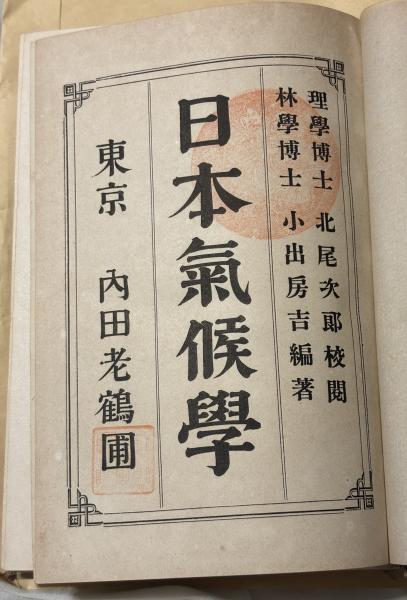 理學博士 北尾次郎校閲
林學博士 小出房吉編著
日本氣候學
東京 內田老鶴圃